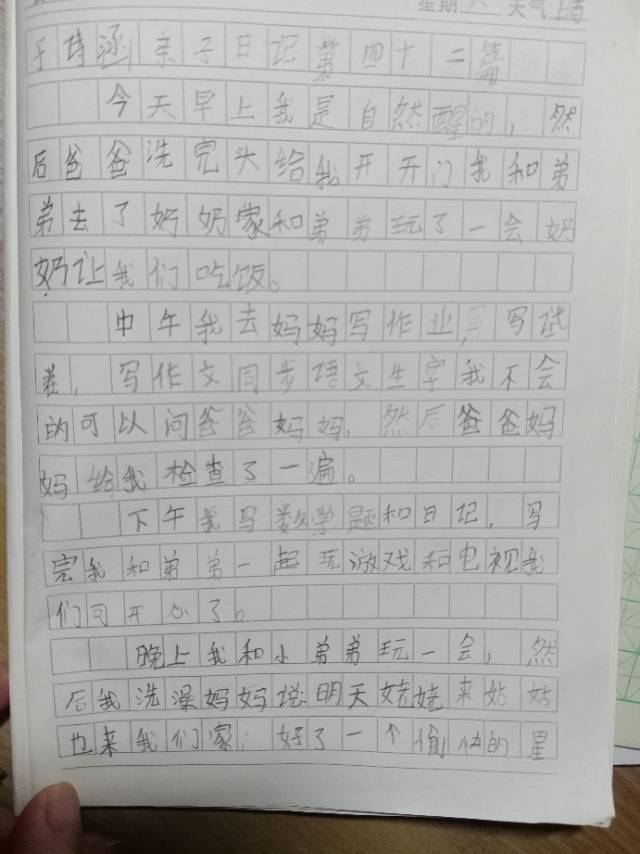 星期六 天气
于诗涵亲子日记第四十二篇
今天早上我是自然醒的，然
后爸爸洗完头给我开开门我和弟
弟去了奶奶家和弟弟玩了一会奶
奶让我们吃饭。
中午我去妈妈写作业，写试
卷，写作文同步语文生字我不会
的可以问爸爸妈妈，然后爸爸妈
妈给我检查了一遍。
下午我写数学题和日记，写
完我和弟弟一起玩游戏和电视我
们可开心了。
晚上我和小弟弟玩一会，然
后我洗澡妈妈说明天姥姥来姑姑
也来我们家，好了一个愉快的星